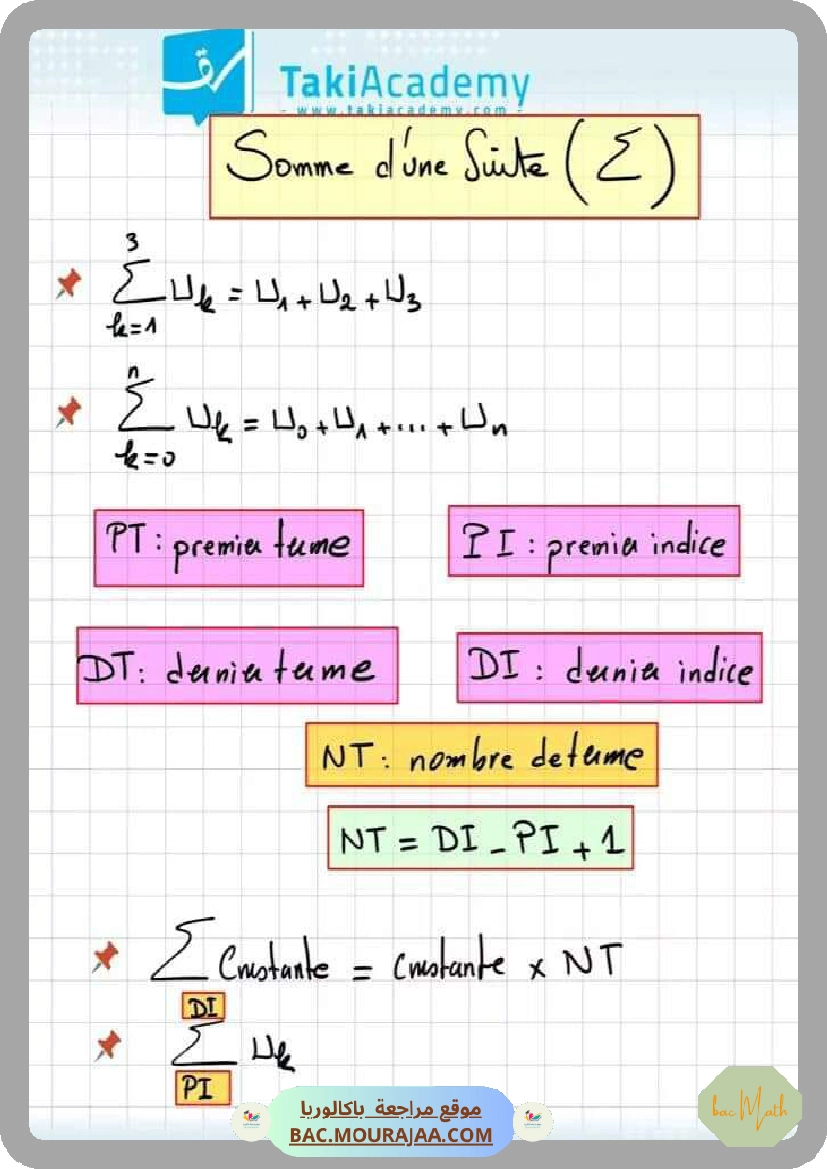 TakiAcademy
- www.takiacademy.com -
Somme d'une Suite (Σ)
3
Σ Uk = U1 + U2 + U3
k=1
n
Σ Uk = U0 + U1 + ... + Un
k=0
PT : premier terme
PI : premier indice
DT : dernier terme
DI : dernier indice
NT : nombre de terme
NT = DI - PI + 1
Σ Constante = Constante × NT
DI
Σ Uk
PI
موقع مراجعة باكالوريا
BAC.MOURAJAA.COM
bac Math